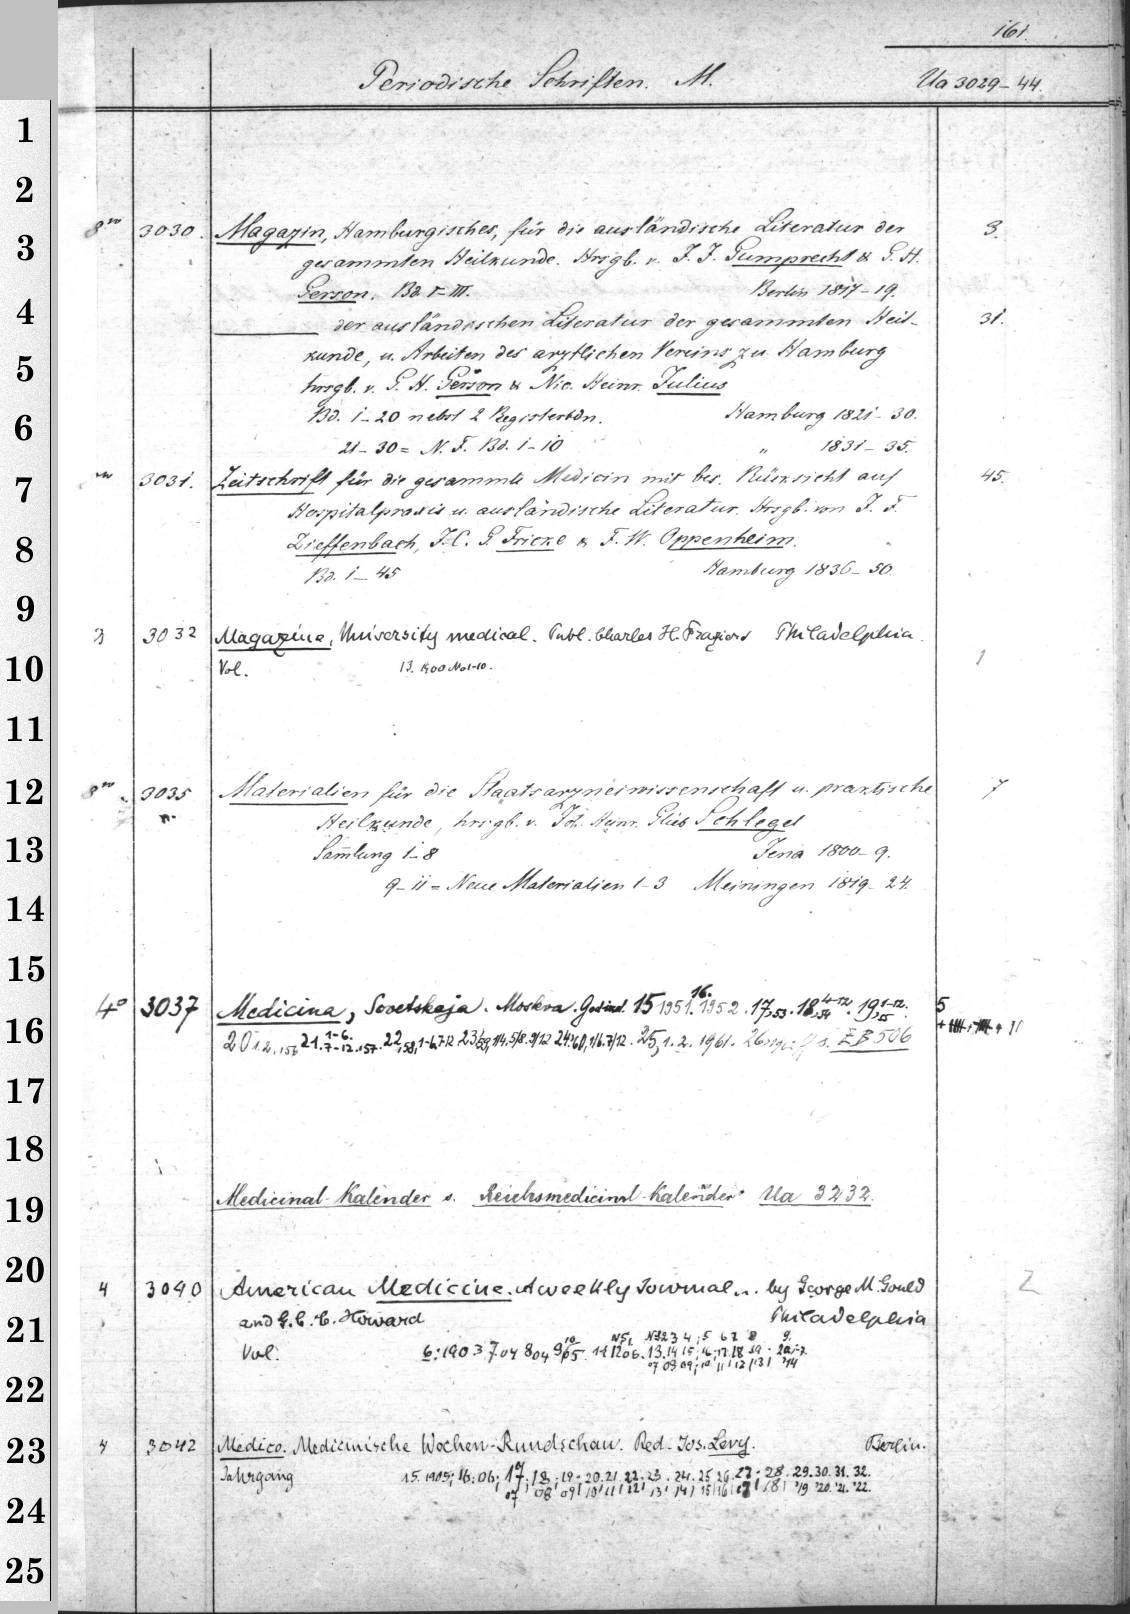 161.
Periodische Schriften. M. Ua 3029-44.
8vo 3030. Magazin, Hamburgisches, für die ausländische Literatur der 3.
gesammten Heilkunde. Hrsgb. v. J. J. Gumprecht & G. H.
Gerson. Bd. I-III. Berlin 1817-19.
der ausländischen Literatur der gesammten Heil- 31.
kunde, u. Arbeiten des arztlichen Vereins zu Hamburg
hrsgb. v. G. H. Gerson & Nic. Heinr. Julius
Bd. 1-20 nebst 2 Registerbdn. Hamburg 1821-30.
21-30 = N. F. Bd. 1-10 " 1831-35.
3031. Zeitschrift für die gesammte Medicin mit bes. Rücksicht auf 45.
Hospitalpraxis u. ausländische Literatur. Hrsgb. von J. F.
Dieffenbach, J. C. G. Fricke & F. W. Oppenheim.
Bd. 1-45 Hamburg 1836-50.
3032 Magazine, University medical. Publ. Charles H. Fraziers Philadelphia.
Vol. 13. 1900 No 1-10. 1
8vo 3035 Materialien für die Staatsarzneiwissenschaft u. praktische 7
n. Heilkunde, hrsgb. v. Joh. Heinr. Glieb Schlegel
Samlung 1-8 Jena 1800-9.
9-11 = Neue Materialien 1-3 Meiningen 1819-24.
4o 3037 Medicina, Sovetskaja. Moskva. 15 1951. 16. 1952. 17,53. 18,54 4-12. 19,55 1-12. 5
20 1.2.,156 21. 1-6. 7-12.157. 22,58, 1-6.7-12 25, 1.2. 1961. s. EB 506
Medicinal-Kalender s. Reichsmedicinal-Kalender Ua 3232.
4 3040 American Medicine. A weekly Journal... by George M. Gould 2
and G. C. C. Howard Philadelphia
Vol. 6:1903 7.04 8 04 9/05.
4 3042 Medico. Medicinische Wochen-Rundschau. Red. Jos. Levy. Berlin.
Jahrgang 15.1905; 16:06; 17; 18; 19. 20. 21. 22. 23. 24. 25. 26. 27. 28. 29. 30. 31. 32.
07 08 09 10 11 12 13 14 15 16 17 18 '19 '20. '21. '22.
1
2
3
4
5
6
7
8
9
10
11
12
13
14
15
16
17
18
19
20
21
22
23
24
25